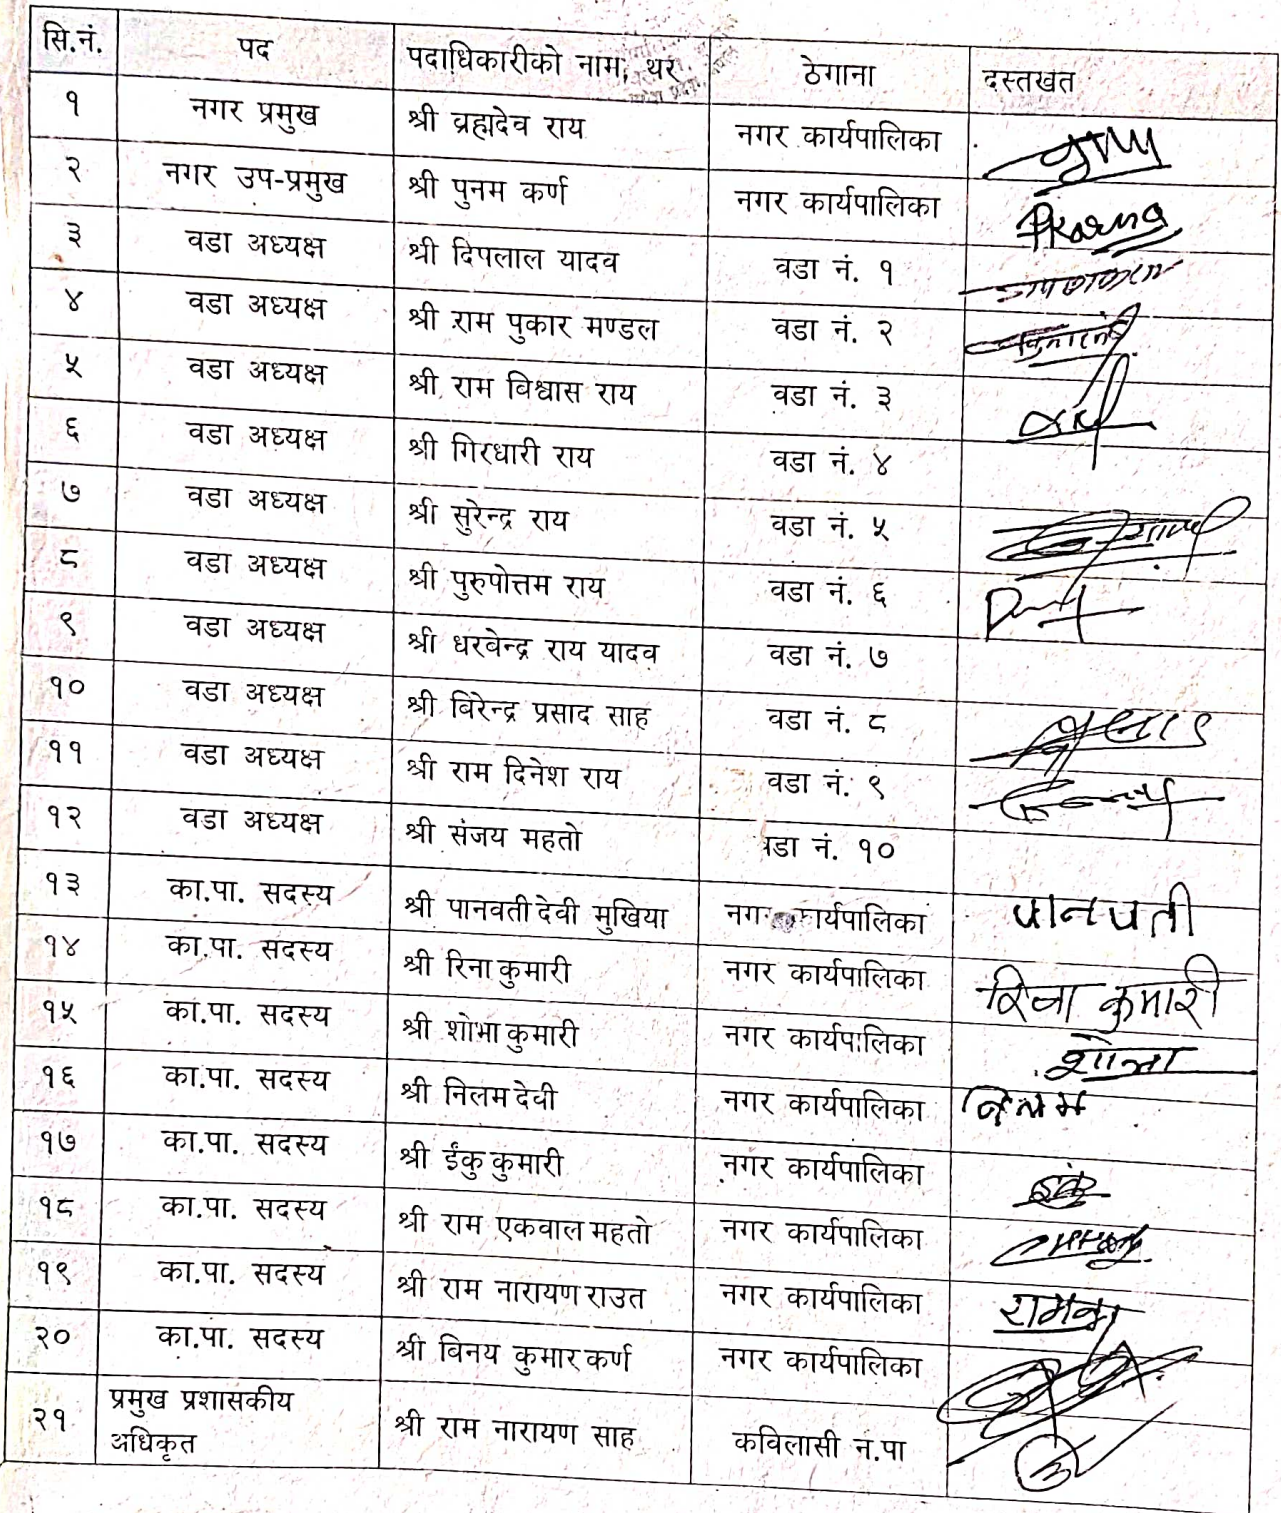 सि.नं. पद पदाधिकारीको नाम, थर ठेगाना दस्तखत
१ नगर प्रमुख श्री ब्रह्मदेव राय नगर कार्यपालिका
२ नगर उप-प्रमुख श्री पुनम कर्ण नगर कार्यपालिका Pkarna
३ वडा अध्यक्ष श्री दिपलाल यादव वडा नं. १
४ वडा अध्यक्ष श्री राम पुकार मण्डल वडा नं. २
५ वडा अध्यक्ष श्री राम विश्वास राय वडा नं. ३
६ वडा अध्यक्ष श्री गिरधारी राय वडा नं. ४
७ वडा अध्यक्ष श्री सुरेन्द्र राय वडा नं. ५
८ वडा अध्यक्ष श्री पुरुषोत्तम राय वडा नं. ६
९ वडा अध्यक्ष श्री धरबेन्द्र राय यादव वडा नं. ७
१० वडा अध्यक्ष श्री बिरेन्द्र प्रसाद साह वडा नं. ८
११ वडा अध्यक्ष श्री राम दिनेश राय वडा नं. ९
१२ वडा अध्यक्ष श्री संजय महतो वडा नं. १०
१३ का.पा. सदस्य श्री पानवती देवी मुखिया नगर कार्यपालिका पानपती
१४ का.पा. सदस्य श्री रिना कुमारी नगर कार्यपालिका रिना कुमारी
१५ का.पा. सदस्य श्री शोभा कुमारी नगर कार्यपालिका शोभा
१६ का.पा. सदस्य श्री निलम देवी नगर कार्यपालिका निलम
१७ का.पा. सदस्य श्री ईंकु कुमारी नगर कार्यपालिका
१८ का.पा. सदस्य श्री राम एकवाल महतो नगर कार्यपालिका
१९ का.पा. सदस्य श्री राम नारायण राउत नगर कार्यपालिका
२० का.पा. सदस्य श्री विनय कुमार कर्ण नगर कार्यपालिका
२१ प्रमुख प्रशासकीय श्री राम नारायण साह कविलासी न.पा
अधिकृत